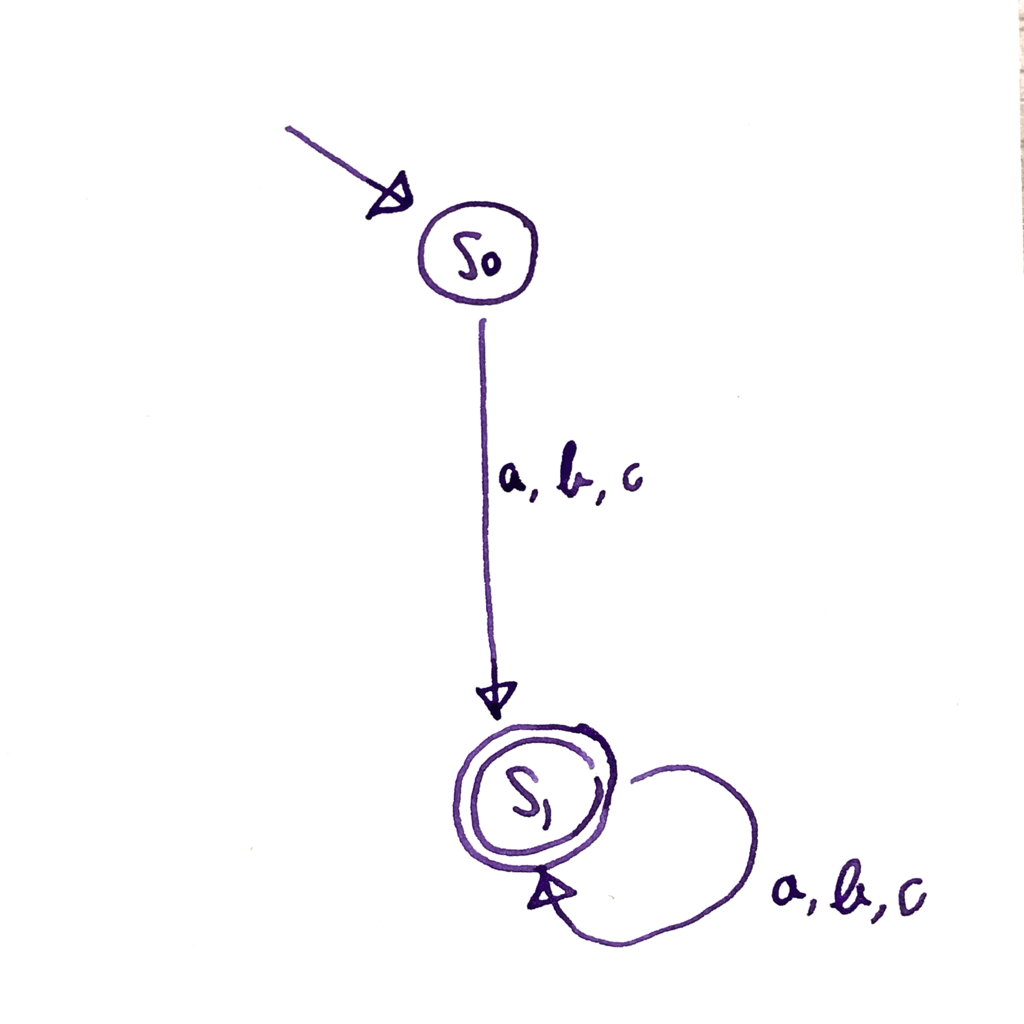 S0
a, b, c
S1
a, b, c